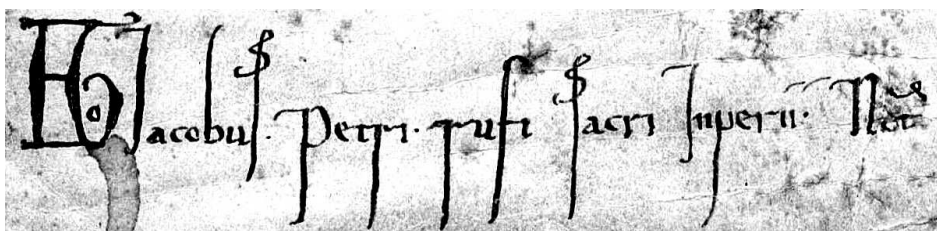 Ego Jacobus. Petri. rufi sacri Inperii. Not